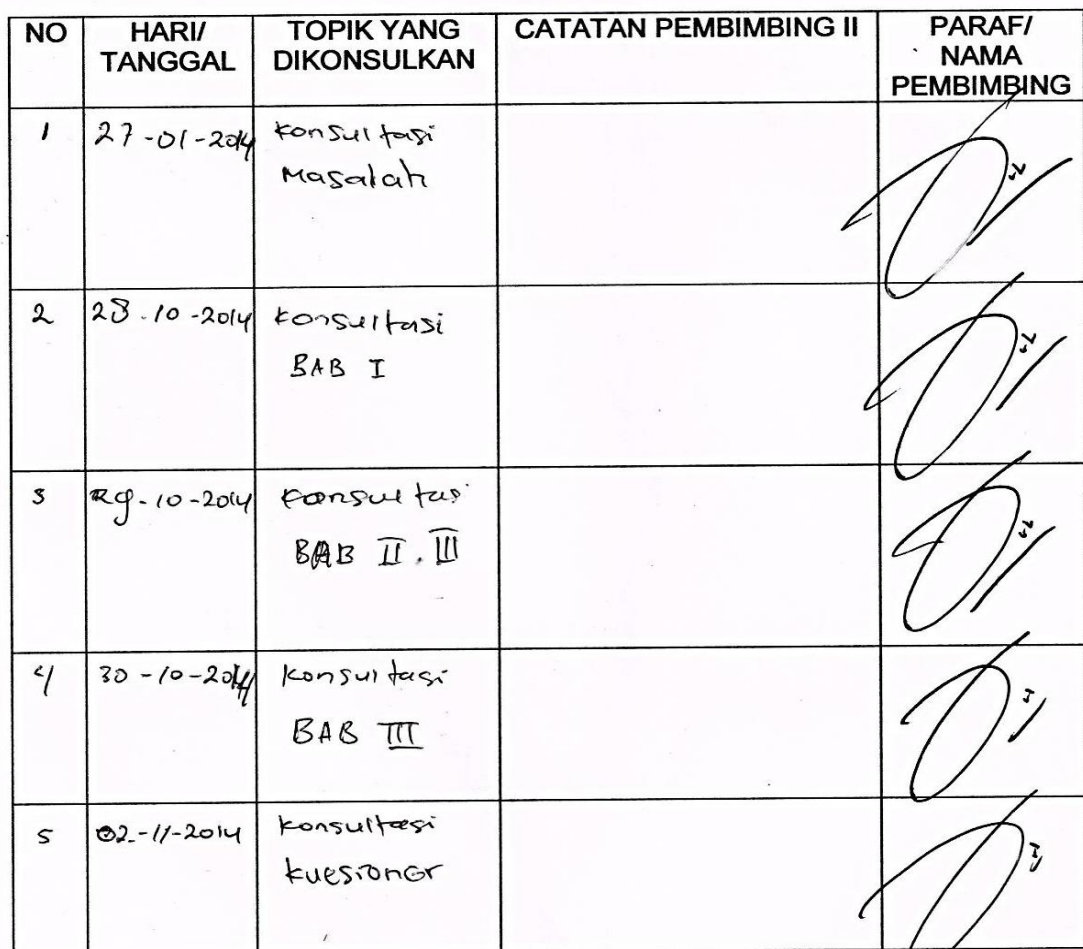 NO HARI/ TOPIK YANG CATATAN PEMBIMBING II PARAF/
TANGGAL DIKONSULKAN NAMA
PEMBIMBING
1 27-01-2014 Konsultasi
Masalah
2 28-10-2014 Konsultasi
BAB I
3 29-10-2014 Konsultasi
BAB II. III
4 30-10-2014 Konsultasi
BAB III
5 02-11-2014 Konsultasi
Kuesioner